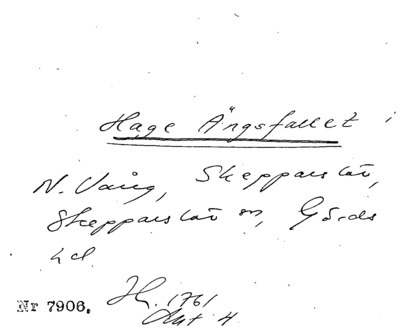 Hage Ängsfallet i
N. Vång, Skepparslöv,
Skepparslöv sn, Gärds
hd
Nr 7906. H. 1761
Akt 4